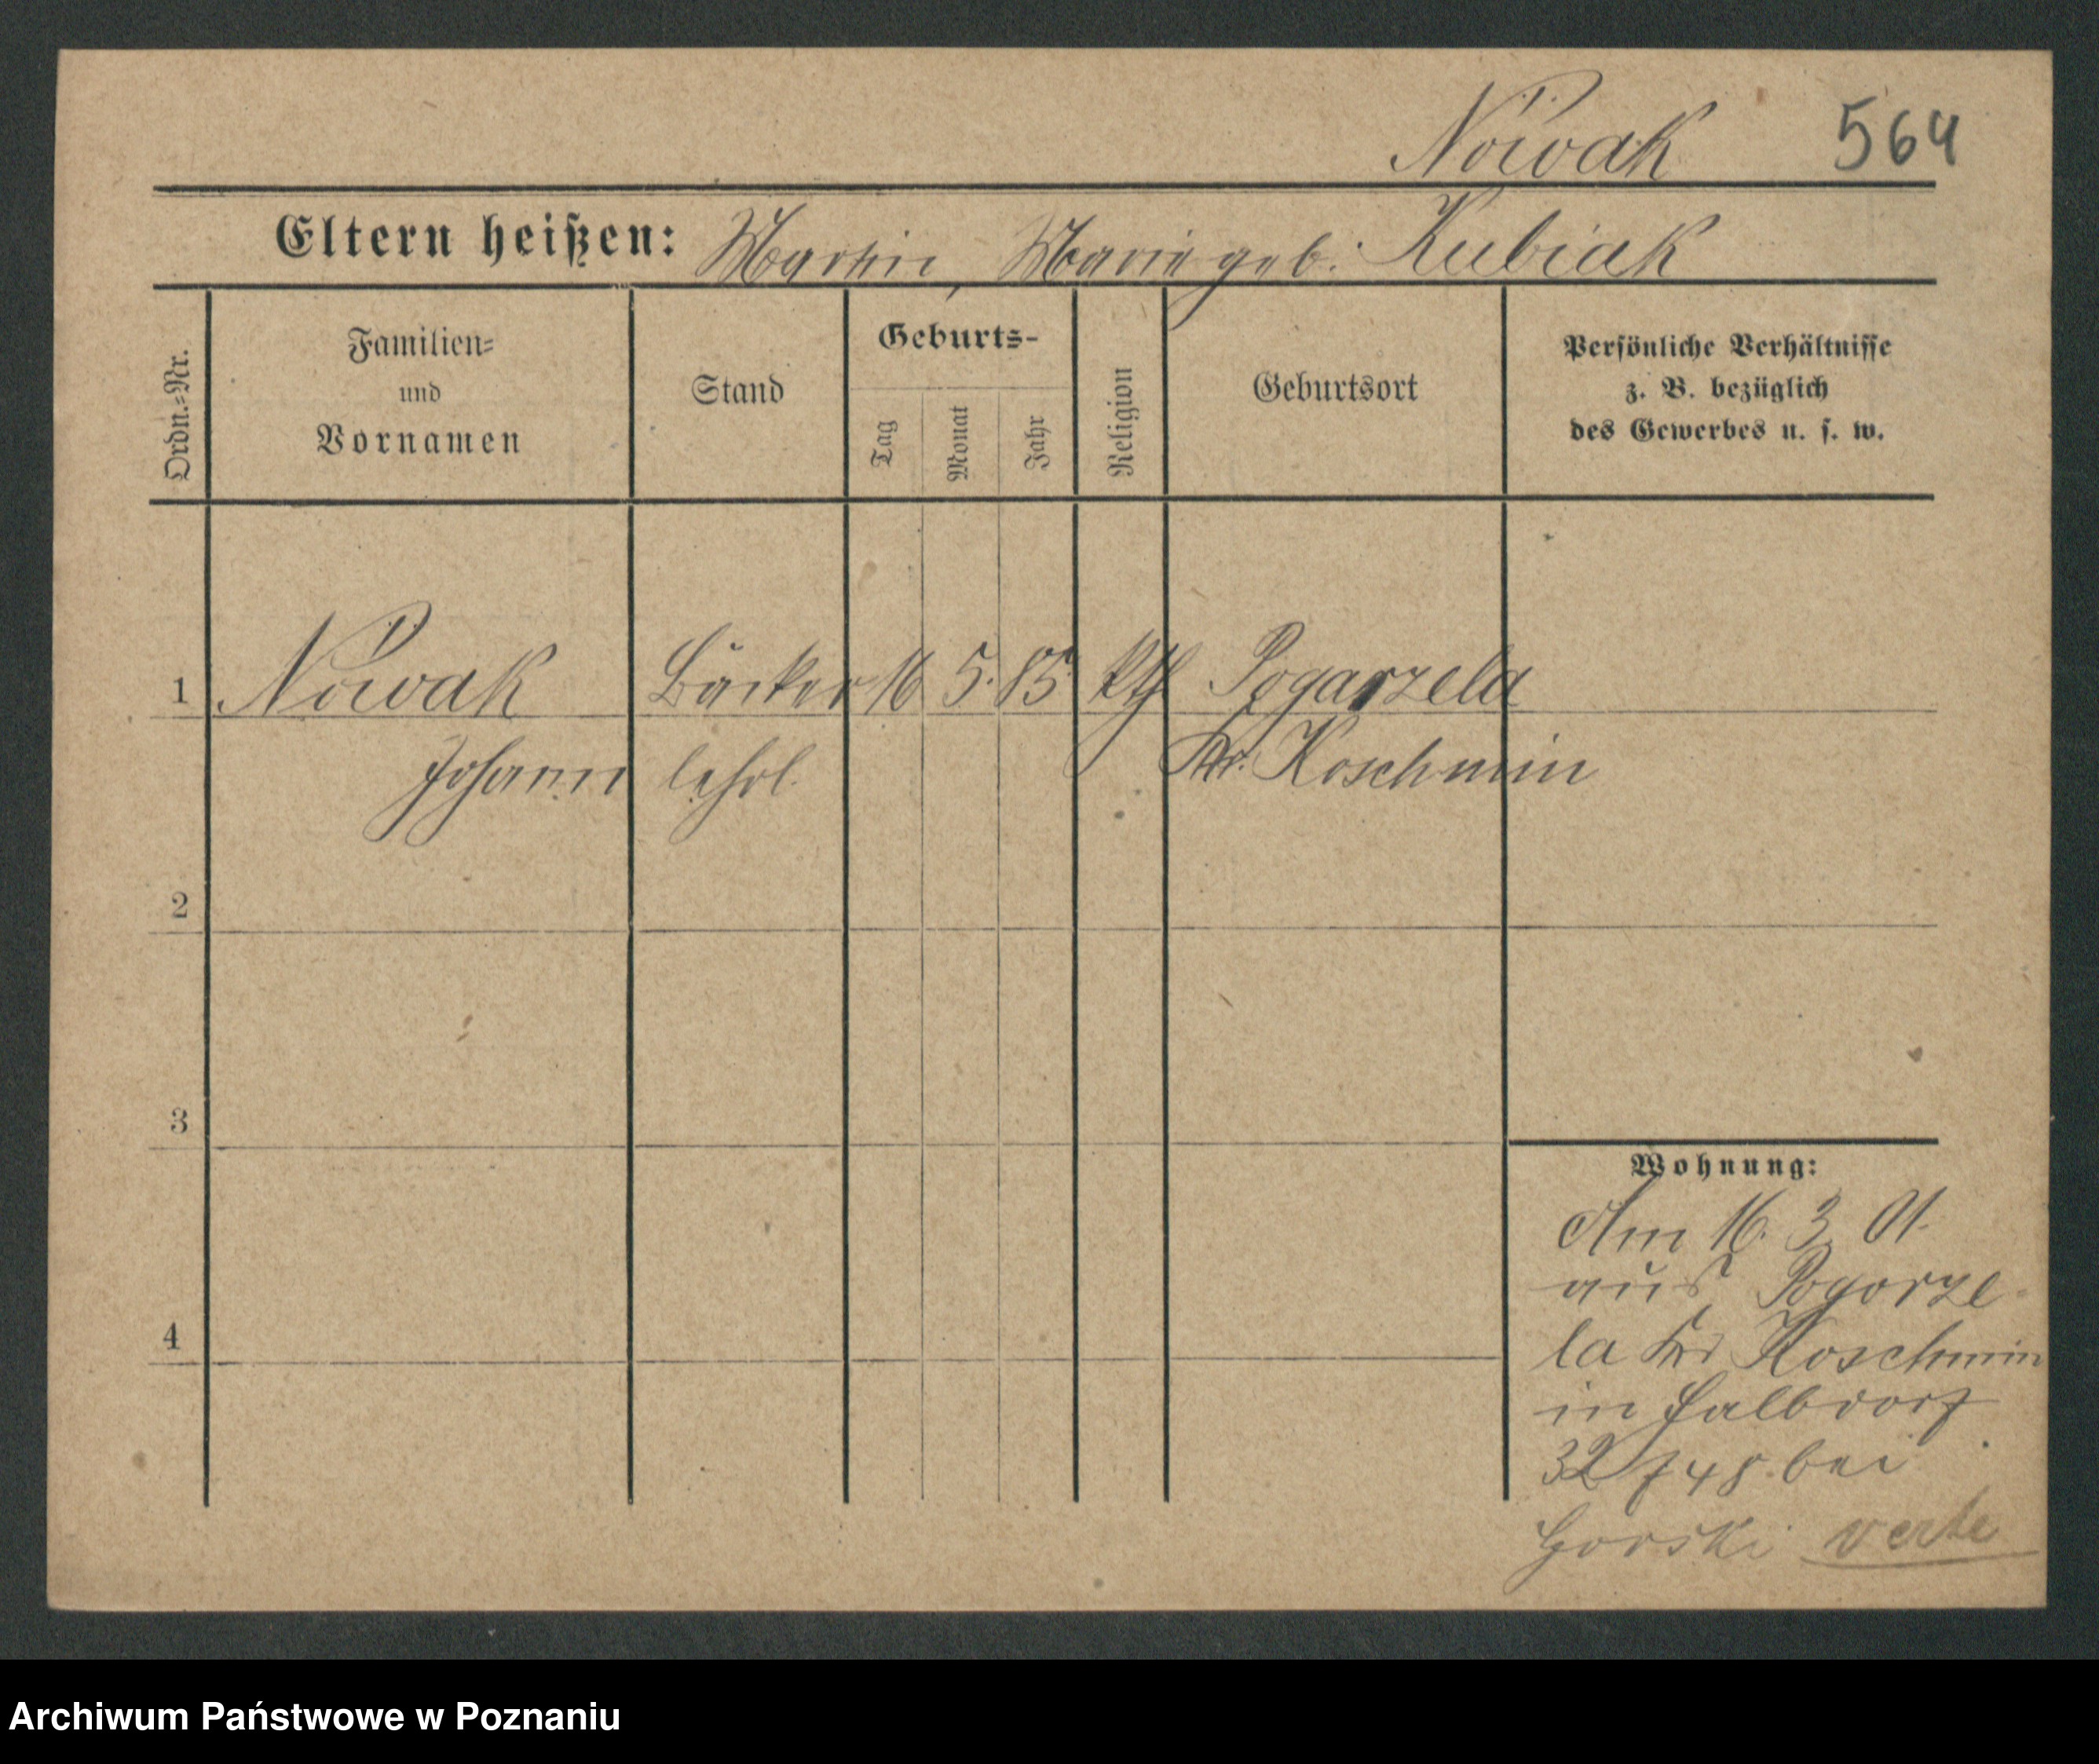 Nowak 564
Eltern heißen: Martin, Marie geb. Kubiak
Ordn.=Nr.
Familien=
und
Vornamen
Stand
Geburts-
Tag
Monat
Jahr
Religion
Geburtsort
Persönliche Verhältnisse
z. B. bezüglich
des Gewerbes u. s. w.
1 Nowak Bäcker 16 5. 85 kth Pogarzela
Johann lehrl. Kr. Koschmin
2
3
4
Wohnung:
Am 16. 3. 01.
aus Pogorze
la Kr Koschmin
in Halbdorf
bei
Gorski verte
Archiwum Państwowe w Poznaniu